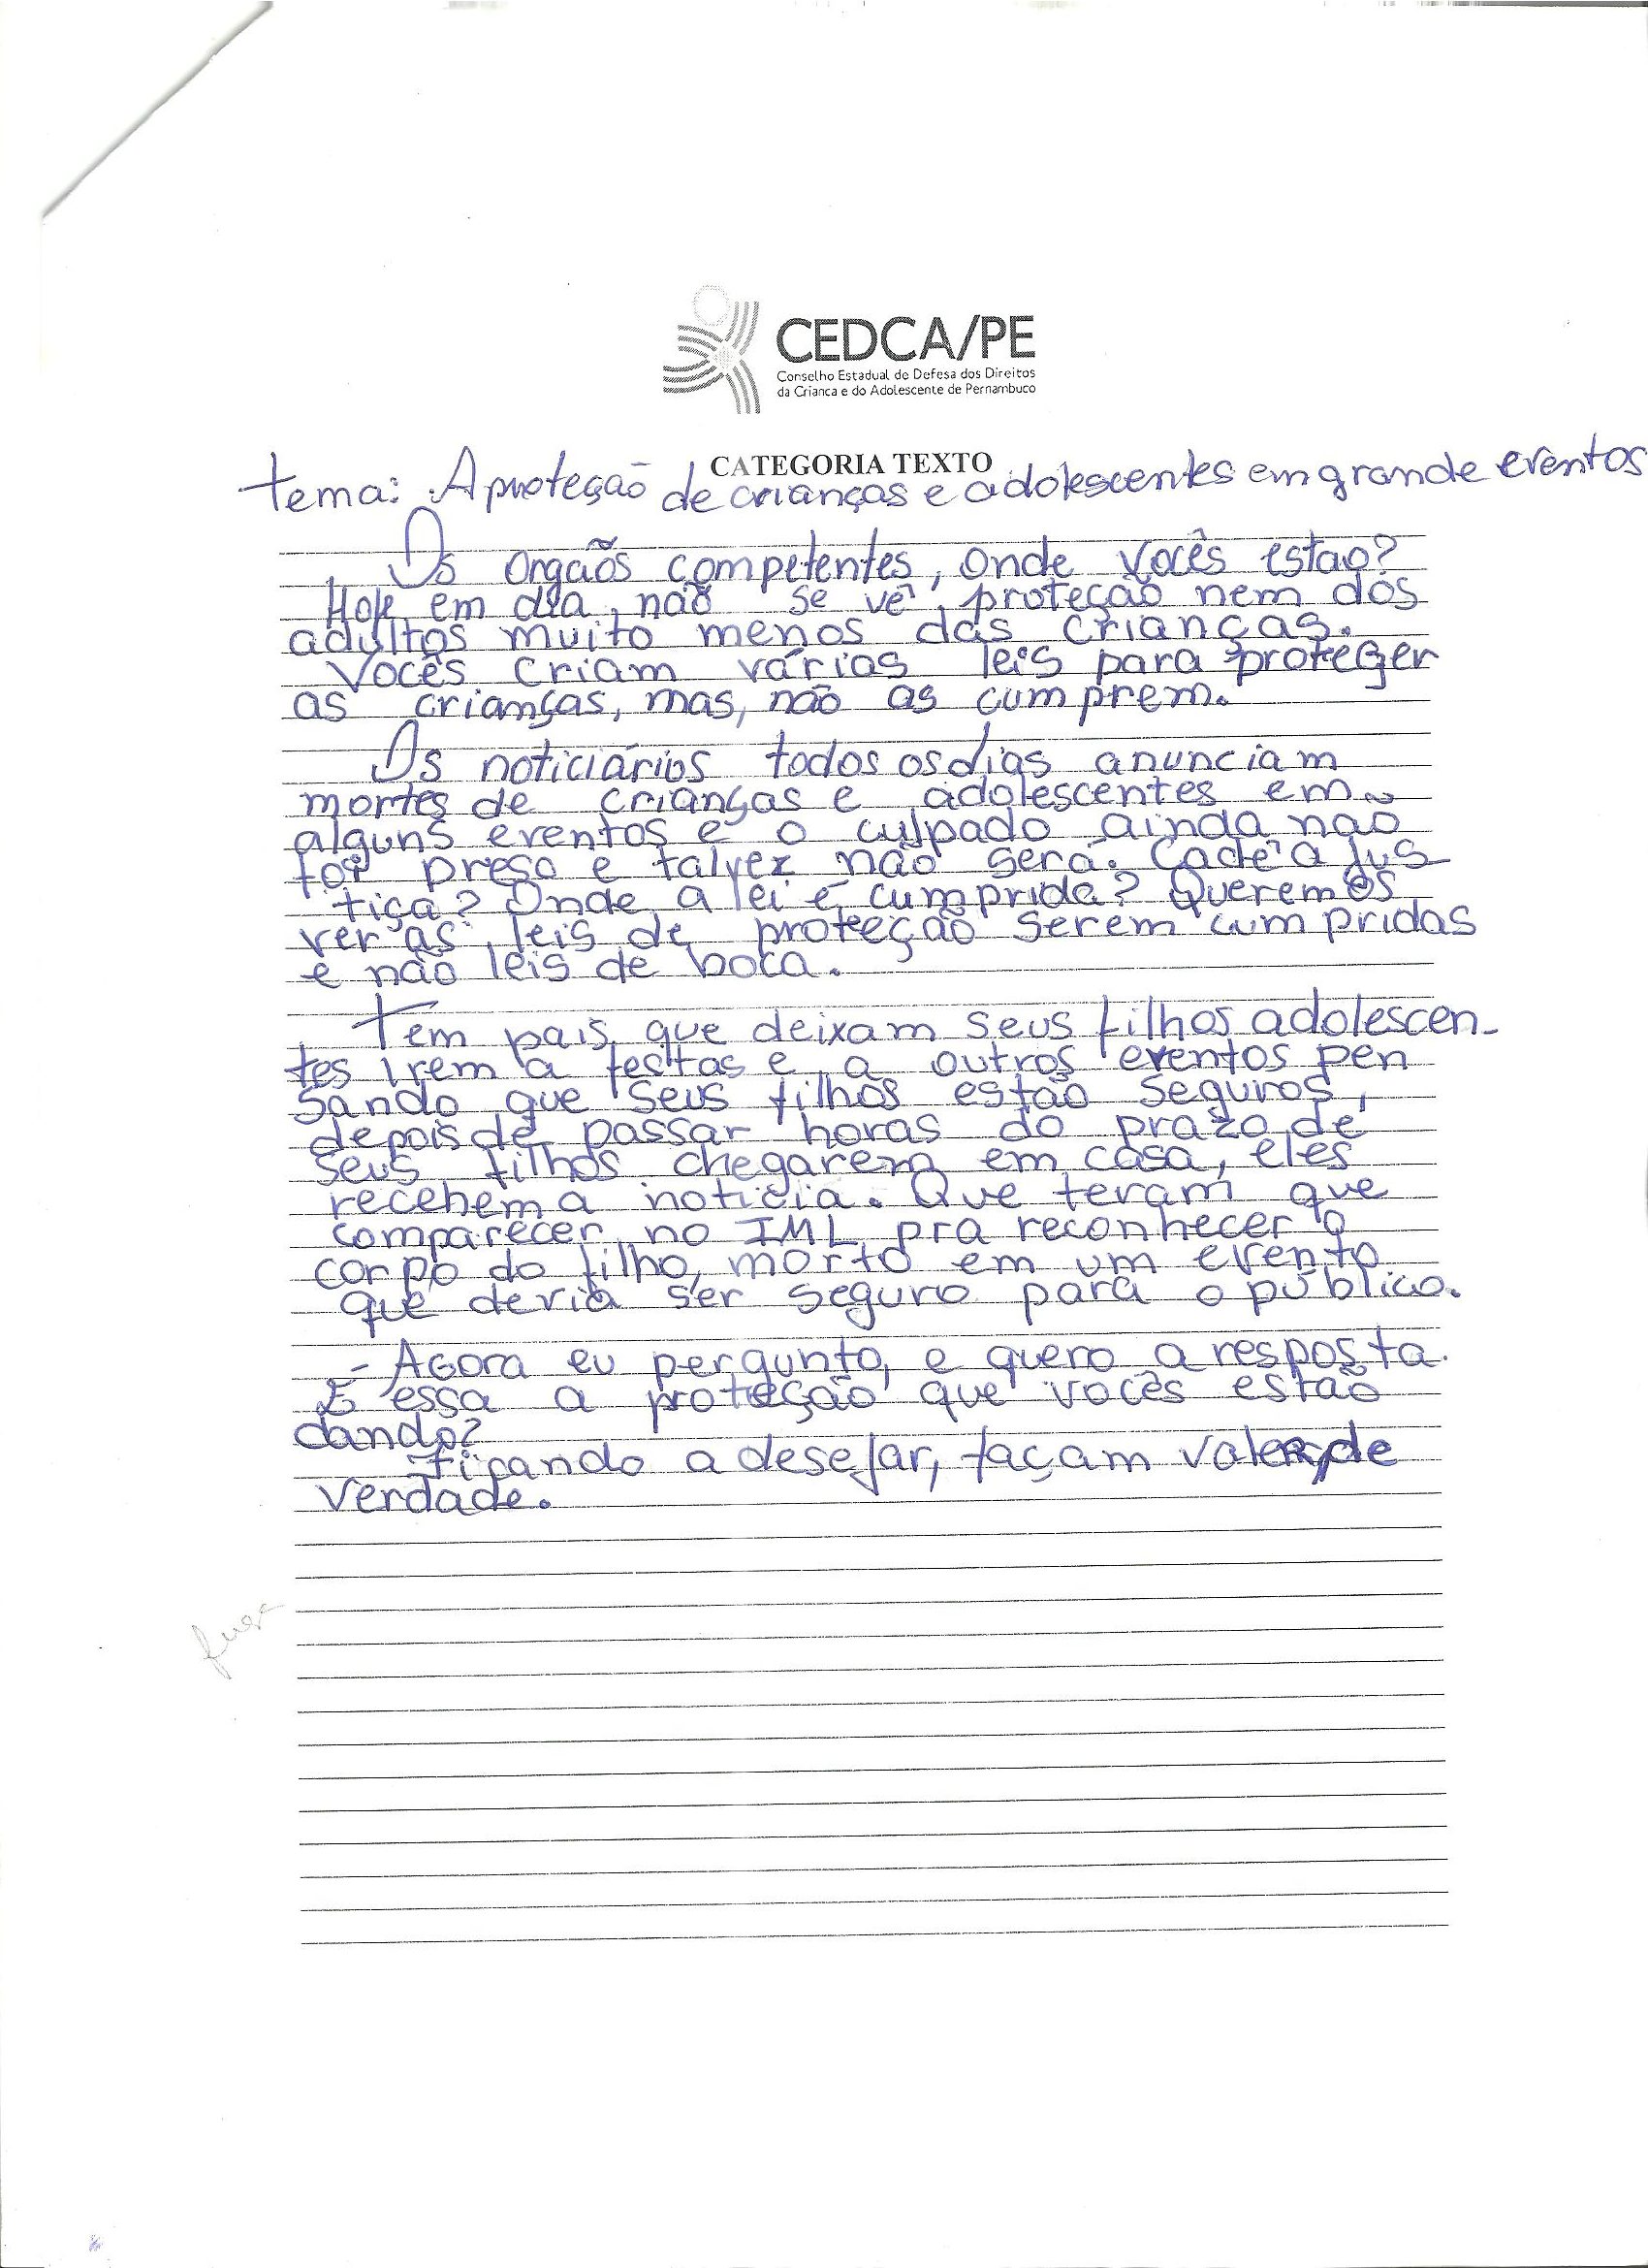 CEDCA/PE
Conselho Estadual de Defesa dos Direitos
da Crianca e do Adolescente de Pernambuco
CATEGORIA TEXTO
tema: A proteção de crianças e adolescentes em grande eventos
Os orgãos competentes, onde vocês estão?
Hoje em dia, não se vê proteção nem dos
adultos muito menos das crianças.
Vocês criam vários leis para proteger
as crianças, mas, não as cumprem.
Os noticiários todos os dias anunciam
mortes de crianças e adolescentes em
alguns eventos e o culpado ainda não
foi preso e talvez não será. Cadê a jus
tiça? Onde a lei é cumprida? Queremos
ver as leis de proteção serem cumpridas
e não leis de boca.
Tem pais que deixam seus filhos adolescen-
tes irem a festas e a outros eventos pen
sando que seus filhos estão seguros,
depois de passar horas do prazo de
seus filhos chegarem em casa, eles
recebem a noticia. Que teram que
comparecer no IML pra reconhecer o
corpo do filho, morto em um evento
que deveria ser seguro para o público.
- Agora eu pergunto, e quero a resposta.
É essa a proteção que vocês estão
dando?
Ficando a desejar, façam valer de
verdade.